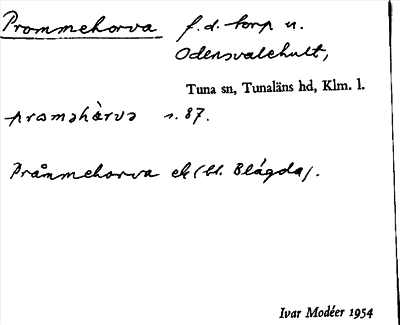 Prommehorva f.d. torp u.
Odensvalehult,
Tuna sn, Tunaläns hd, Klm. l.
praməhàrva s. 87.
Pråmmehorva ek (bl. Blågda).
Ivar Modéer 1954